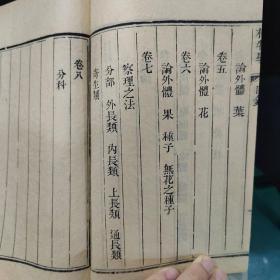 植物學 目錄
論外體 葉
卷五
論外體 花
卷六
論外體 果 種子 無花之種子
卷七
察理之法
分部 外長類 內長類 上長類 通長類
寄生類
卷八
分科